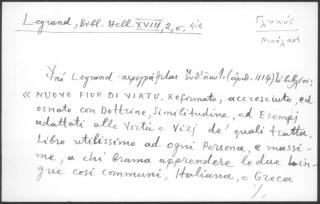 Legrand, Bibl. Hell. XVIII, 2, σ. 412
Γλυκύς
Νικόλαος
Ὑπό Legrand περιγράφεται (ἀριθ. 1114) τό βιβλίον:
« NUOVO FIOR DI VIRTU. Reformato, accresciuto, ed
ornato con Dottrine, Similitudine, ed Esempj
adattati alle Virtù e Vizj de' quali tratta.
Libro utilissimo ad ogni Persona, e massi-
me, a chi brama apprendere le due Lin-
gue così communi, Italiana, e Greca
./.